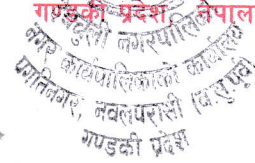 गण्डकी प्रदेश, नेपाल
नगरपालिका
नगर कार्यपालिकाको कार्यालय
प्रगतिनगर, नवलपरासी (ब.सु.पूर्व)
गण्डकी प्रदेश